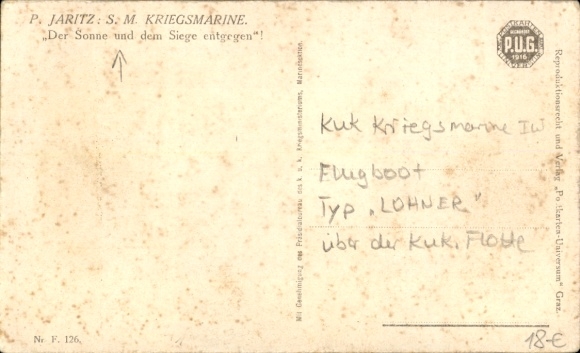 P. JARITZ: S. M. KRIEGSMARINE.
„Der Sonne und dem Siege entgegen"!
P.U.G.
1916
Mit Genehmigung des Präsidialbureau des k. u. k. Kriegsministeriums, Marinesektion.
Reproduktionsrecht und Verlag „Postkarten-Universum" Graz.
KuK Kriegsmarine IW
Flugboot
Typ „LOHNER"
über der KuK. Flotte
Nr F. 126.
18-€